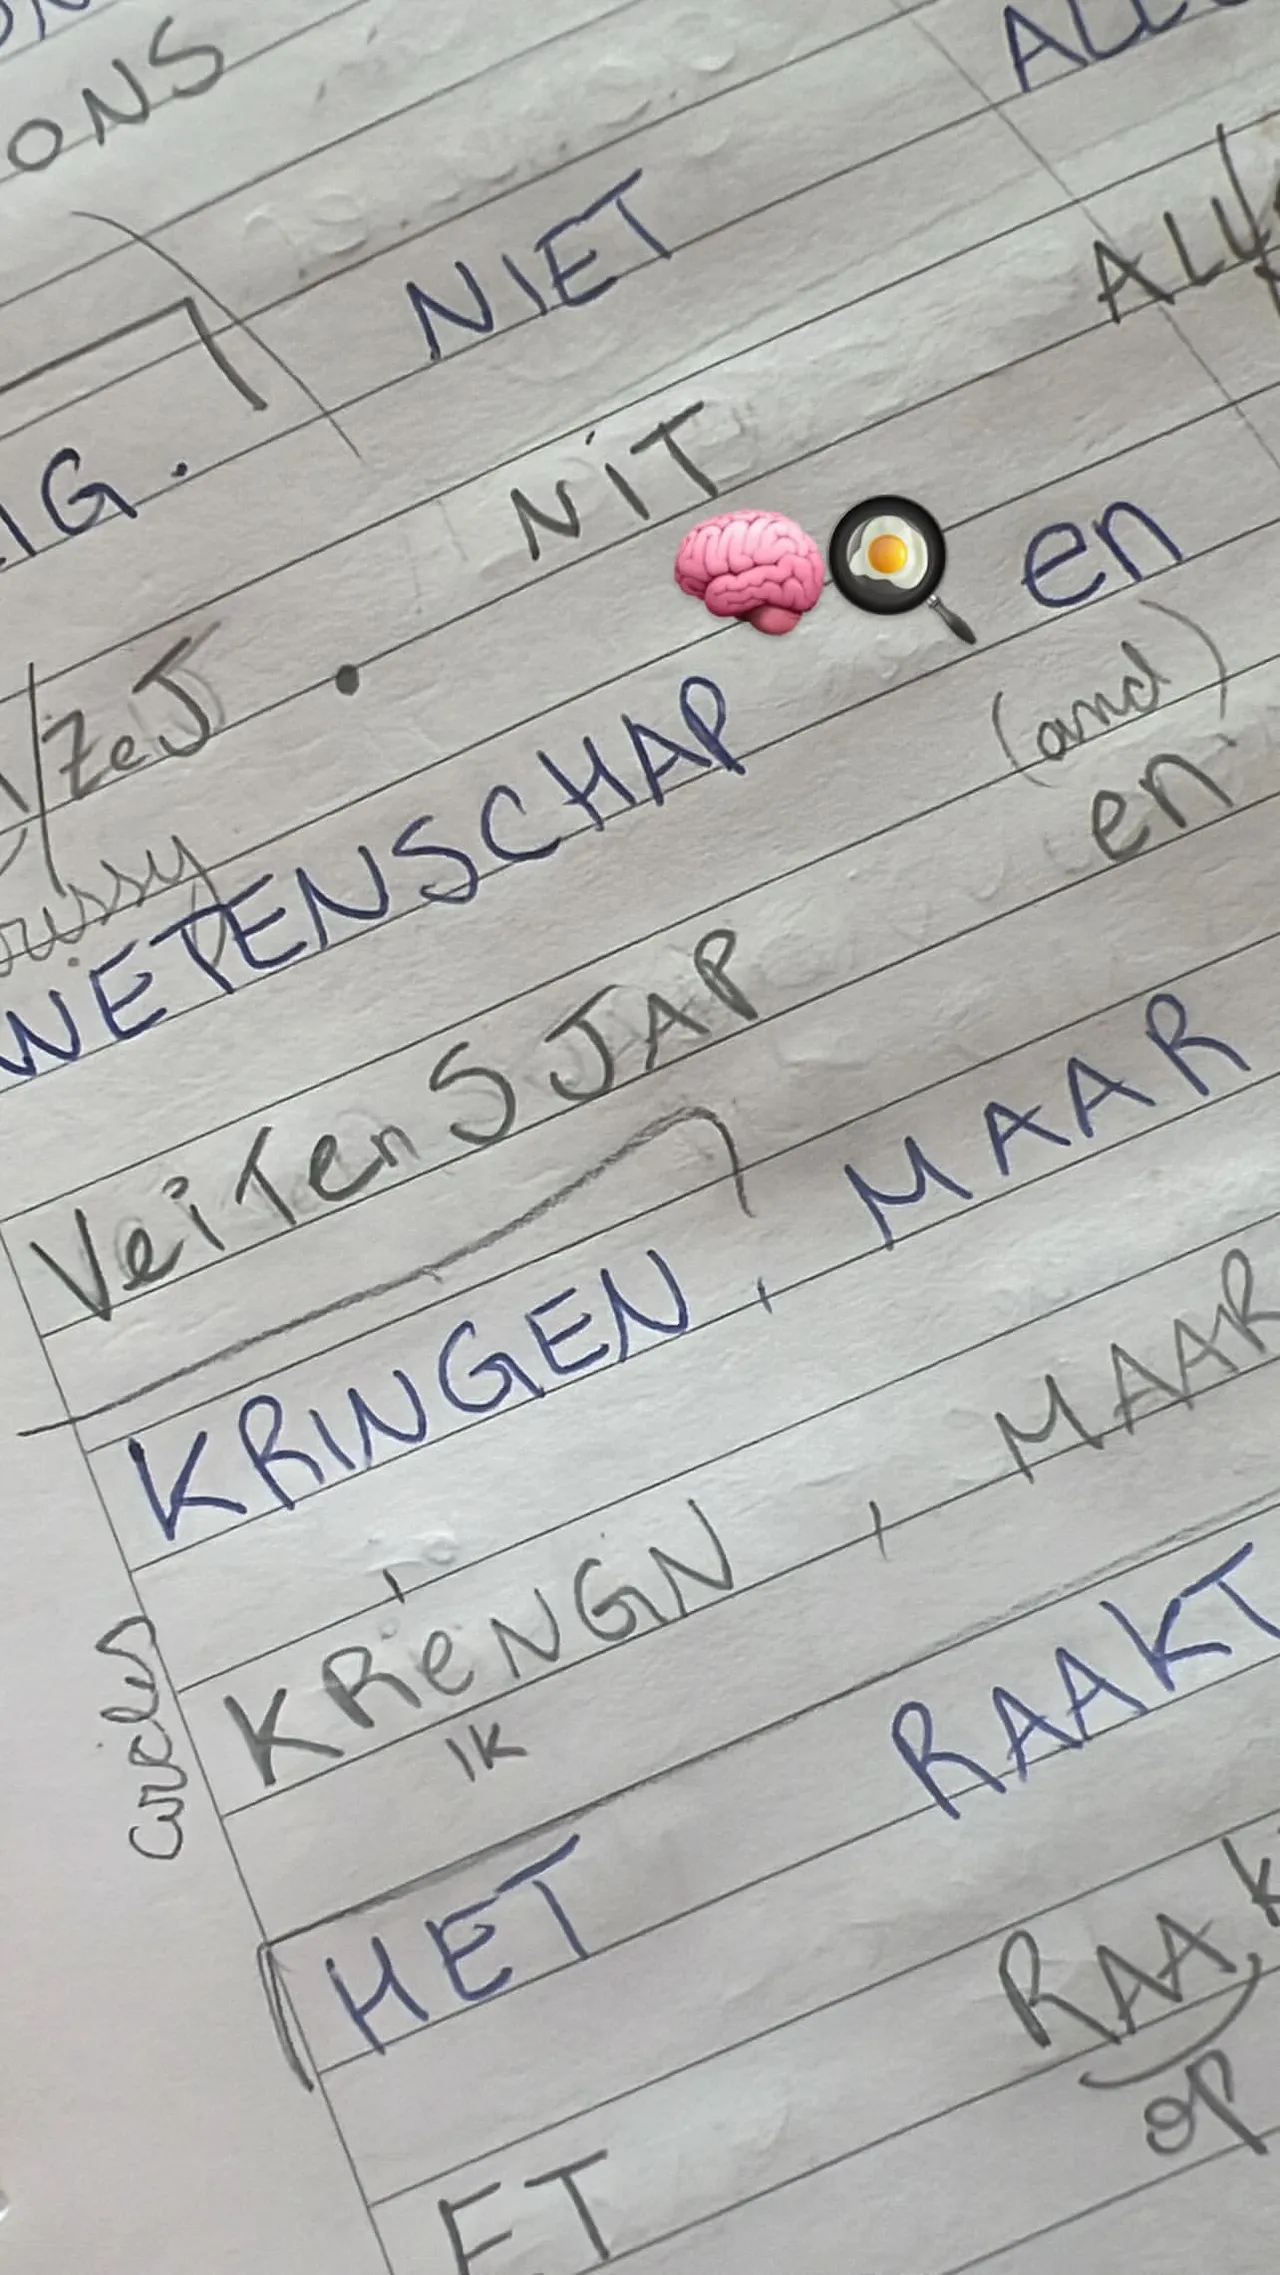 ONS
NIET
NiT
IG.
/ZeJ
WETENSCHAP en
(and)
VeiTenSJAP en
KRINGEN, MAAR
KReNGN, MAAR
IK
circles
HET RAAKT
RAA
op
ET